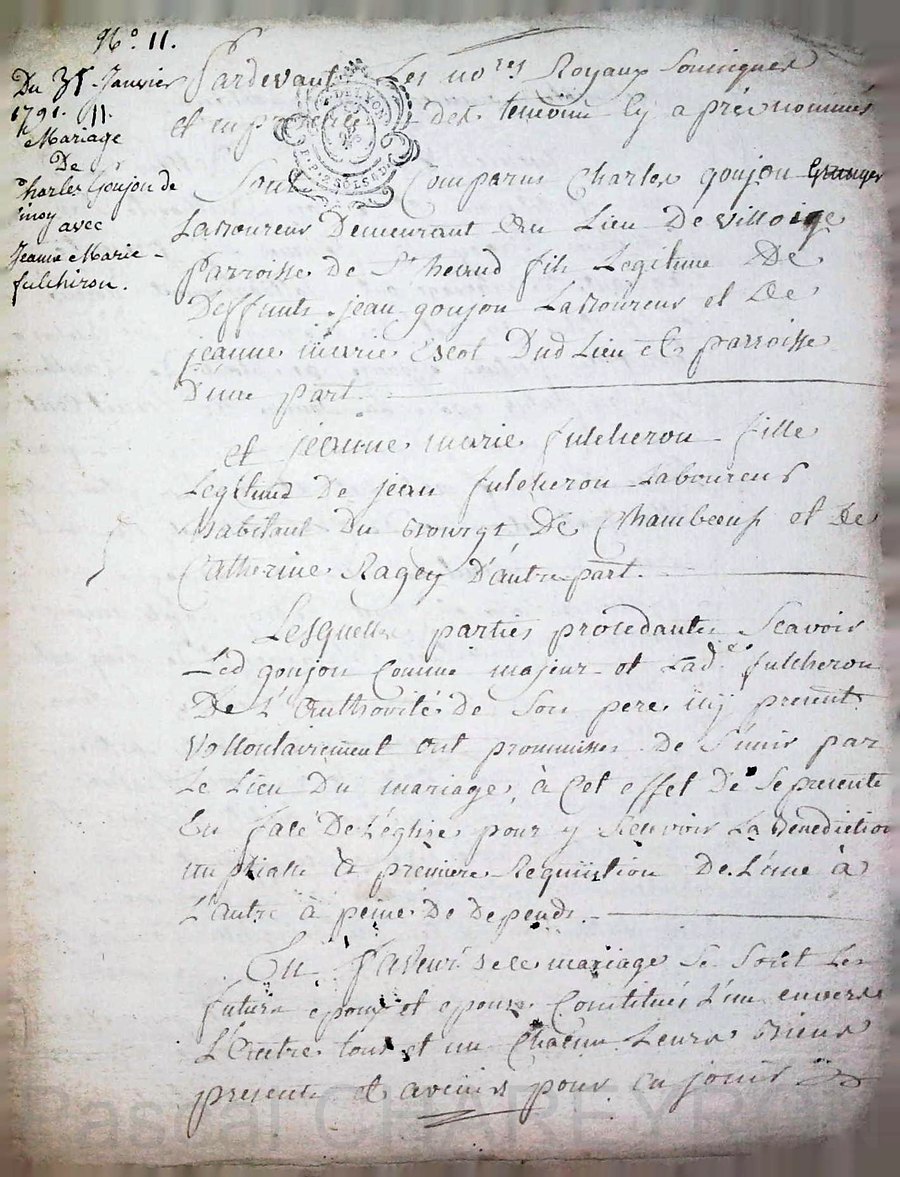 N.° 11.
Du 31. Janvier
1791.
Mariage
De
Charles Goujon de
moy avec
Jeanne Marie
fulchiron.
Pardevant Les no.res Royaux Soussignes
et en des temoins Cy aprés nommés
Sont Comparus Charles goujon
Laboureur Demeurant au Lieu De villoige
parroisse de St heand fils Legitime De
Deffunts jean goujon Laboureur et De
jeanne marie Escot Dud Lieu et parroisse
D'une part.
et jeanne marie fulcheron fille
Legitime De jean fulcheron Laboureur
habitant Du Bourgt De Chambeouf et De
Catherine Ragey D'autre part.
Lesquelles parties procedantes Scavoir
Led goujon Comme majeur et Lad.e fulcheron
De L'authorité De Son pere icy present
Vollontairement ont promises De S'unir par
Le Lien Du mariage, à Cet effet De Se presenter
En face De L'eglise pour y Recevoir La Benediction
nuptialle à premiere Requisition De L'une à
L'autre à peine De Depends.
En faveur de ce mariage Se Sont Les
futurs epoux et epouse Constitués L'un envers
L'autre tous et un Chacun Leurs Biens
presents et avenirs pour en jouir
Pascal CHAREYRON